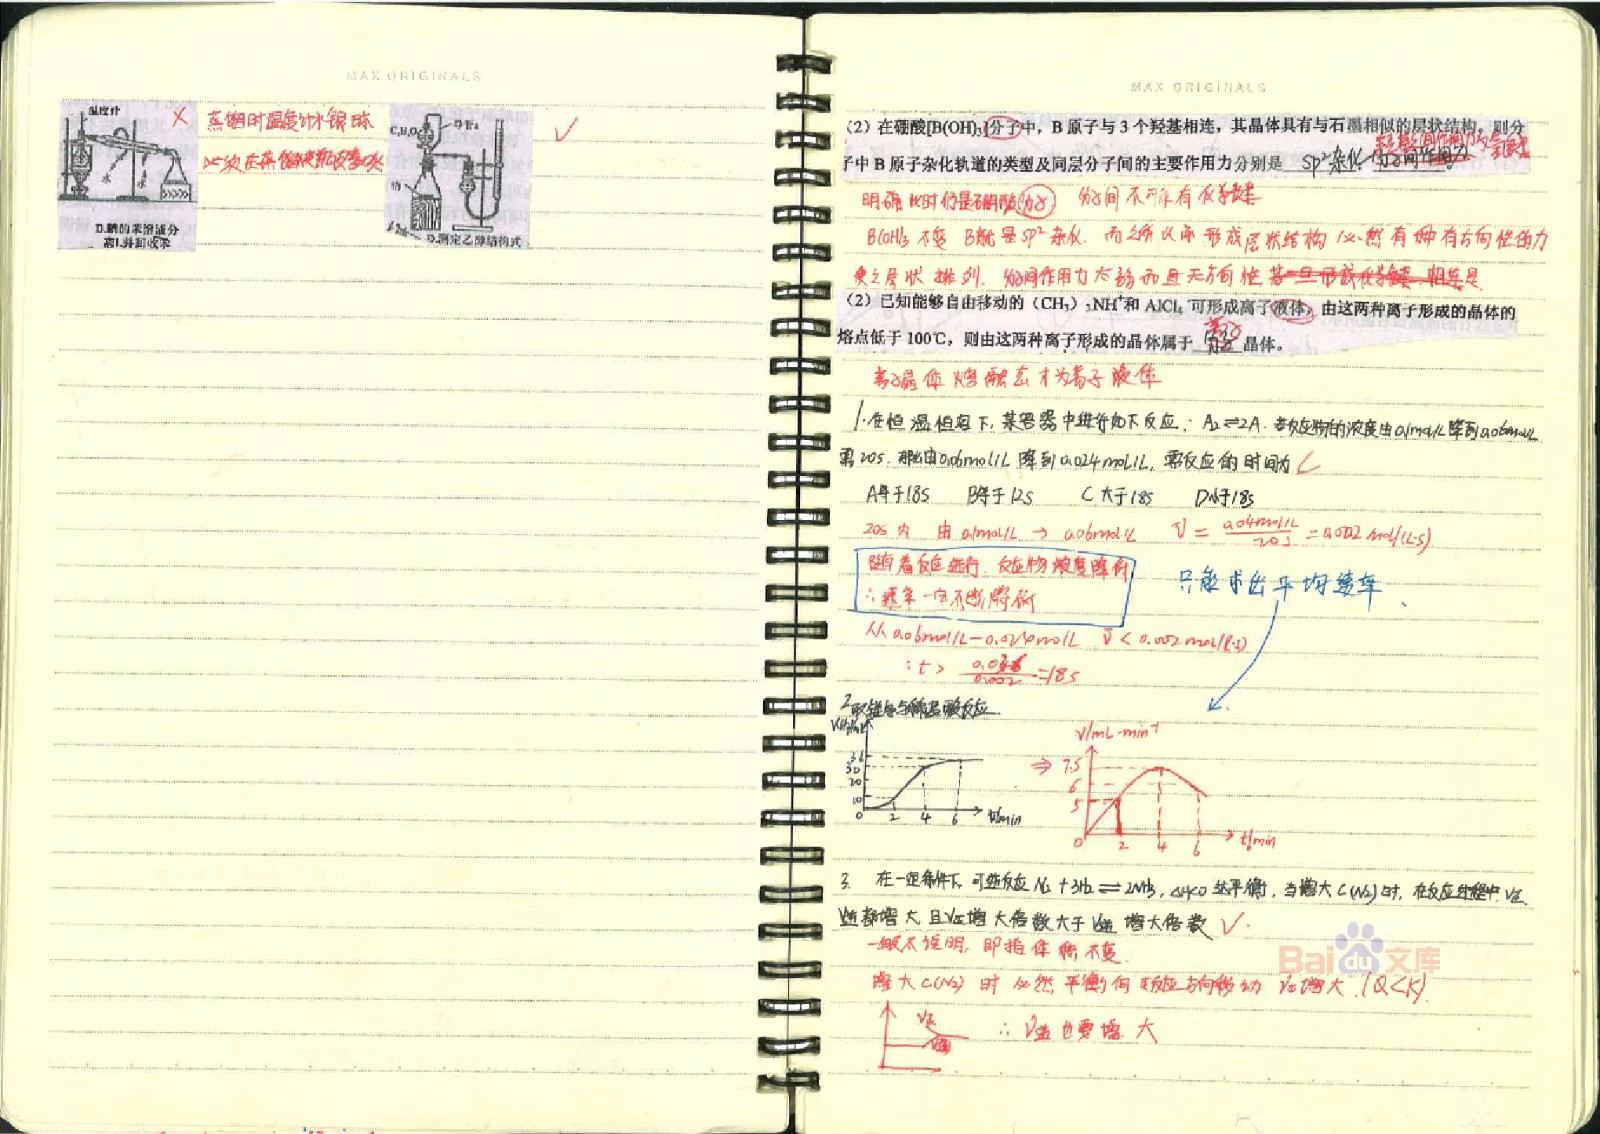 MAX ORIGINALS
温度计
蒸馏时温度计水银球
水
水
D.碘的苯溶液分
离I₂并回收苯
C₂H₆O
钠
D.测定乙醇结构式
MAX ORIGINALS
(2)在硼酸[B(OH)₃]分子中，B原子与3个羟基相连，其晶体具有与石墨相似的层状结构。则分
子中B原子杂化轨道的类型及同层分子间的主要作用力分别是 sp²杂化 分子间作用力
明确此时仍是硼酸分子 分子间不可能有化学键
B(OH)₃不变 B就是sp²杂化. 而之所以需形成层状结构 必然有一种有方向性的力
使之层状排列. 分子间作用力太弱而且无方向性
(2)已知能够自由移动的(CH₃)₃NH⁺和AlCl₄⁻可形成离子液体，由这两种离子形成的晶体的
熔点低于100℃，则由这两种离子形成的晶体属于 离子 晶体。
离子晶体熔融态才为离子液体
1.在恒温恒容下，某容器中进行如下反应：A₂⇌2A. 若反应物的浓度由0.1mol/L降到0.06mol/L
需20s. 那么由0.06mol/L降到0.024mol/L, 需反应的时间为 C
A等于18s B等于12s C大于18s D小于18s
20s内 由0.1mol/L → 0.06mol/L V̄ = 0.04mol/L / 20s = 0.002mol/(L·s)
随着反应进行. 反应物浓度降低
∴速率一定不断降低
只能求出平均速率.
从0.06mol/L-0.024mol/L V̄ < 0.002mol/(L·s)
∴t > 0.036/0.002 =18s
2.
V(H₂)/mL
36
30
20
10
0 2 4 6 t/min
⇒
V/mL·min⁻¹
7.5
6
5
0 2 4 6 t/min
3. 在一定条件下, 可逆反应N₂+3H₂⇌2NH₃, △H<0达平衡, 当增大C(N₂)时, 在反应过程中V正.
V逆都增大, 且V正增大倍数大于V逆增大倍数 ✓.
一般不说明, 即指体积不变.
增大C(N₂)时必然平衡向正反应方向移动 V正增大.(Q<K).
V正
V逆
∴V逆也要增大
Baidu文库